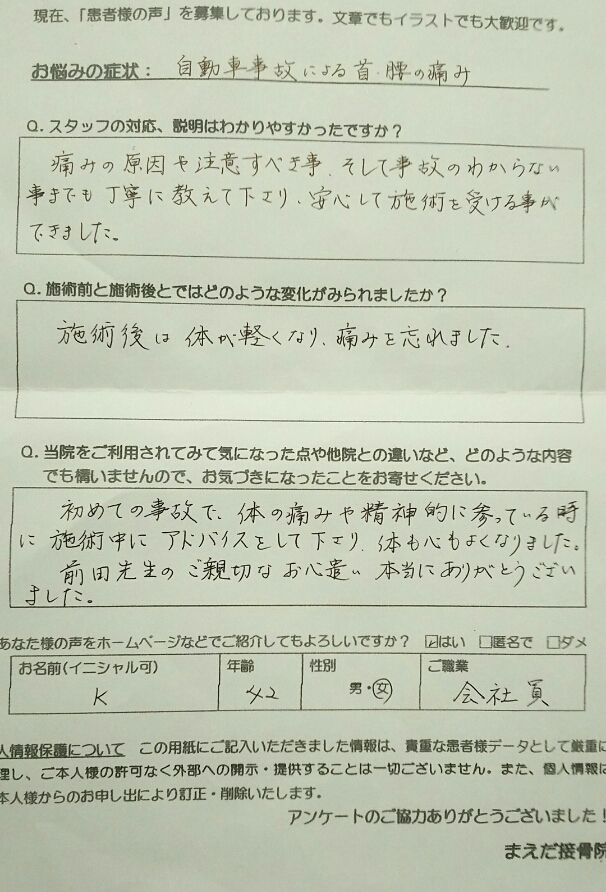 現在、「患者様の声」を募集しております。文章でもイラストでも大歓迎です。
お悩みの症状： 自動車事故による首・腰の痛み
Q. スタッフの対応、説明はわかりやすかったですか？
痛みの原因や注意すべき事、そして事故のわからない
事までも丁寧に教えて下さり、安心して施術を受ける事が
できました。
Q. 施術前と施術後とではどのような変化がみられましたか？
施術後は体が軽くなり、痛みを忘れました。
Q. 当院をご利用されてみて気になった点や他院との違いなど、どのような内容
でも構いませんので、お気づきになったことをお寄せください。
初めての事故で、体の痛みや精神的に参っている時
に施術中にアドバイスをして下さり、体も心もよくなりました。
前田先生のご親切なお心遣い本当にありがとうござい
ました。
あなた様の声をホームページなどでご紹介してもよろしいですか？ ☑はい □匿名で □ダメ
お名前(イニシャル可) 年齢 性別 ご職業
K 42 男・女 会社員
人情報保護について この用紙にご記入いただきました情報は、貴重な患者様データとして厳重に
理し、ご本人様の許可なく外部への開示・提供することは一切ございません。また、個人情報は
本人様からのお申し出により訂正・削除いたします。
アンケートのご協力ありがとうございました！
まえだ接骨院